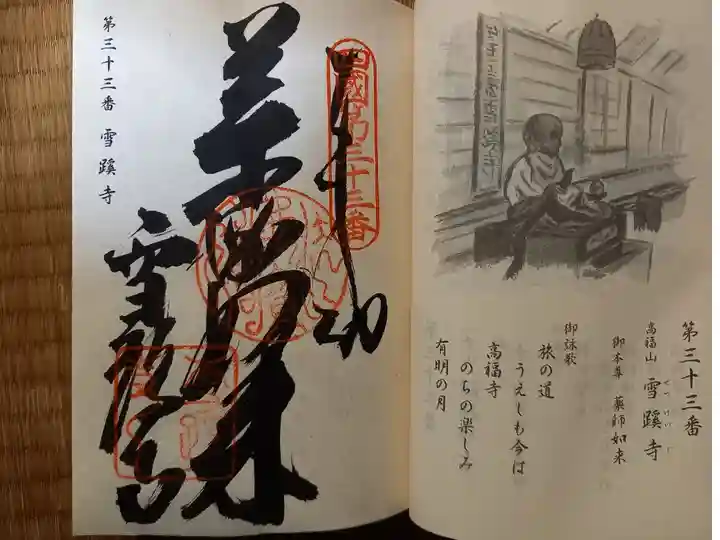 第三十三番
高福山 雪蹊寺
せっけいじ
御本尊 薬師如来
御詠歌
旅の道
うえしも今は
高福寺
のちの楽しみ
有明の月
四國第三十三番
奉納
薬師如来
雪蹊寺
第三十三番 雪蹊寺